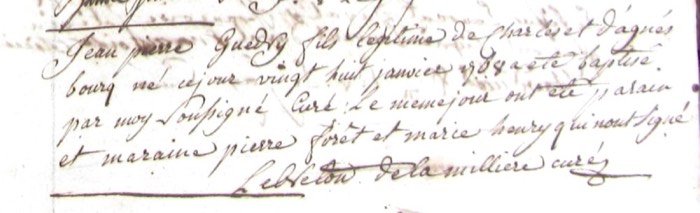 Jean pierre Guedry fils legitime de Charles et d'agnés
bourq né cejour vingt huit janvier 1768 a eté baptisé
par moy soussigné Curé. Le meme jour ont eté parain
et maraine pierre forêt et marie henry qui nont signé
Lebreton de la milliere curé